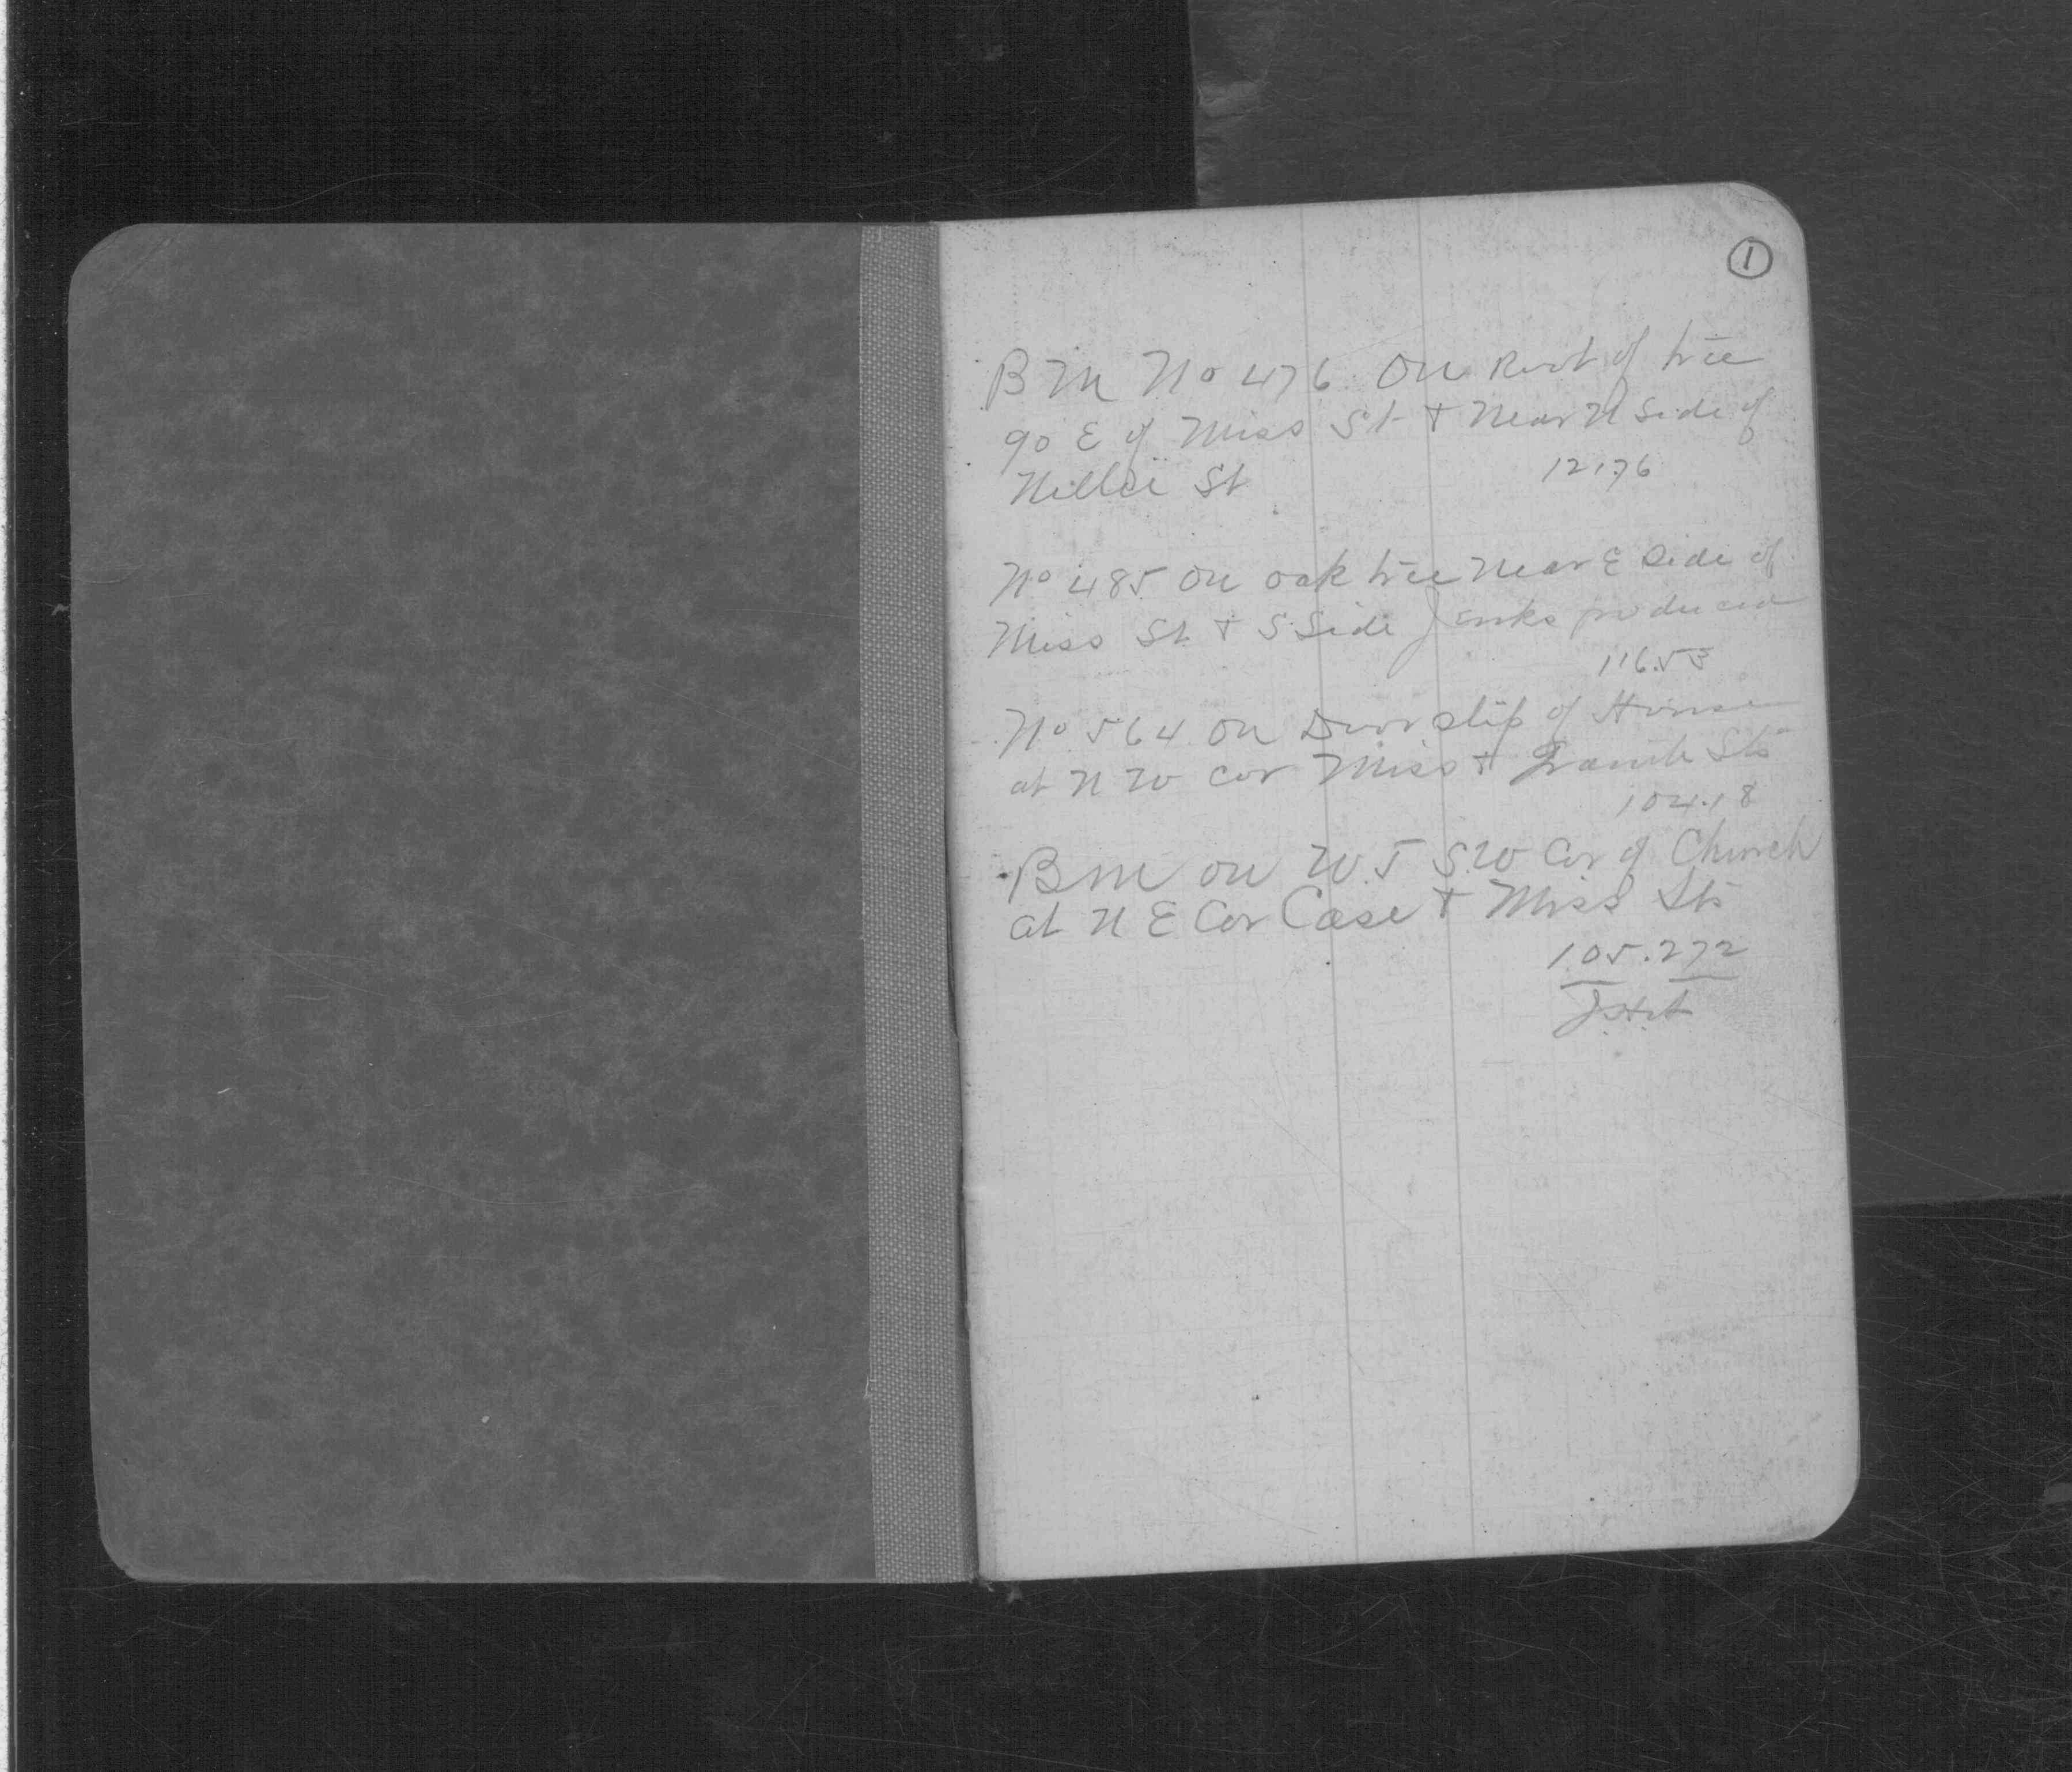 1
BM No 476 On Root of tree
90 E of Miss St + Near N Side of
St 121.76
No 485 On oak tree Near E Side of
Miss St + S Side Jenks produced
116.53
No 564 on Door slip of House
at N W cor Miss + Granite Sts
104.18
BM on W.T S.W Cor of Church
at N E Cor Case + Miss Sts
105.272